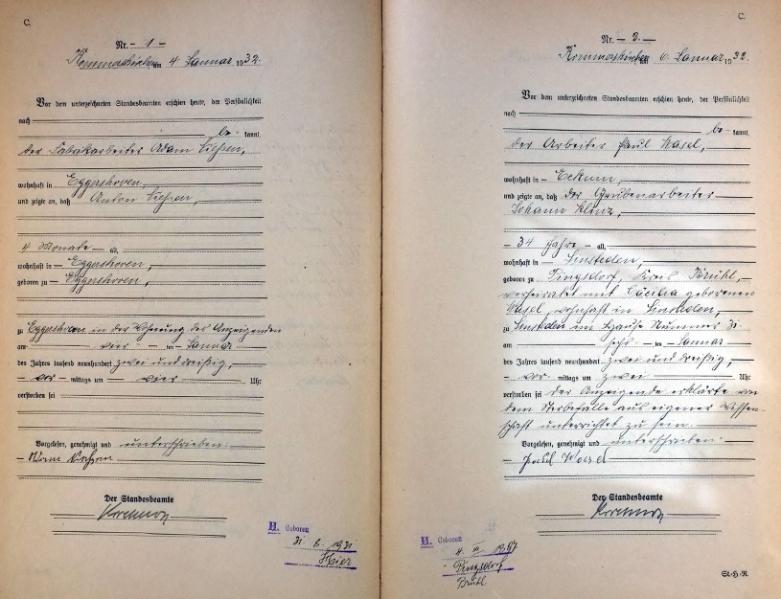 C.
Nr. - 1 -
Rommerskirchen am 4 Januar 1932.
Vor dem unterzeichneten Standesbeamten erschien heute, der Persönlichkeit
nach
be- kannt,
der Fabrikarbeiter Adam
wohnhaft in Eggershoven,
und zeigte an, daß Anton
4 Monate - alt,
wohnhaft in - Eggershoven,
geboren zu - Eggershoven,
zu Eggershoven in der Wohnung des Anzeigenden
am - vier - ten Januar
des Jahres tausend neunhundert zwei und dreißig,
- vor - mittags um - vier - Uhr
verstorben sei
Vorgelesen, genehmigt und unterschrieben.
Der Standesbeamte
H. Geboren
C.
Nr. - 2. -
Rommerskirchen am 6. Januar 1932.
Vor dem unterzeichneten Standesbeamten erschien heute, der Persönlichkeit
nach
be- kannt,
der Arbeiter Paul Wasel,
wohnhaft in - Eckum,
und zeigte an, daß der Grubenarbeiter
Johann Klinz,
- 34 Jahre - alt,
wohnhaft in - Sinsteden,
geboren zu Pingsdorf, Kreis Brühl,
verheiratet mit Cäcilia geborenen
Wasel, wohnhaft in Sinsteden,
zu Sinsteden im Hause Nummer 31.
am sechs - ten Januar
des Jahres tausend neunhundert zwei und dreißig,
- vor - mittags um zwei Uhr
verstorben sei der Anzeigende erklärte von
dem Sterbefalle aus eigener Wissen-
schaft unterrichtet zu sein.
Vorgelesen, genehmigt und unterschrieben.
- Paul Wasel
Der Standesbeamte
H. Geboren
Pingsdorf
Brühl
St.-H.-R.